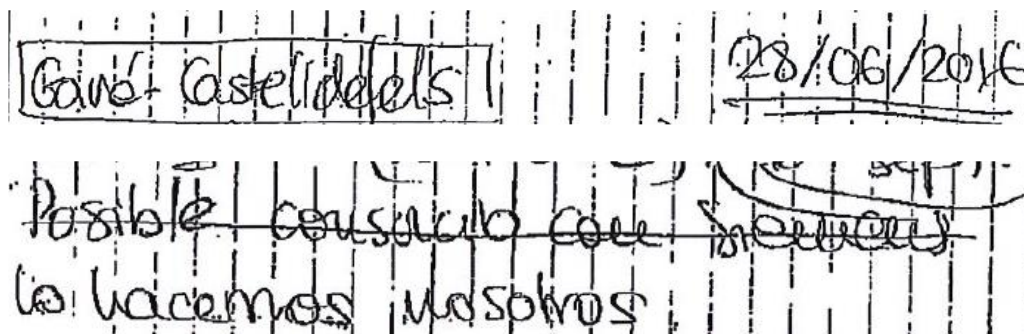 Gavé - Castelldefels 28/06/2016
sept.
Posible consorcio con Siemens
lo hacemos nosotros